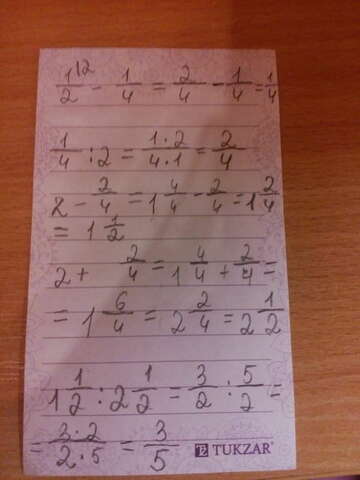 1/2 ¹² - 1/4 = 2/4 - 1/4 = 1/4
1/4 : 2 = 1·2/4·1 = 2/4
2 - 2/4 = 1 4/4 - 2/4 = 1 2/4
= 1 1/2
2 + 2/4 = 1 4/4 + 2/4 =
= 1 6/4 = 2 2/4 = 2 1/2
1 1/2 : 2 1/2 = 3/2 : 5/2 =
= 3·2/2·5 = 3/5
TUKZAR